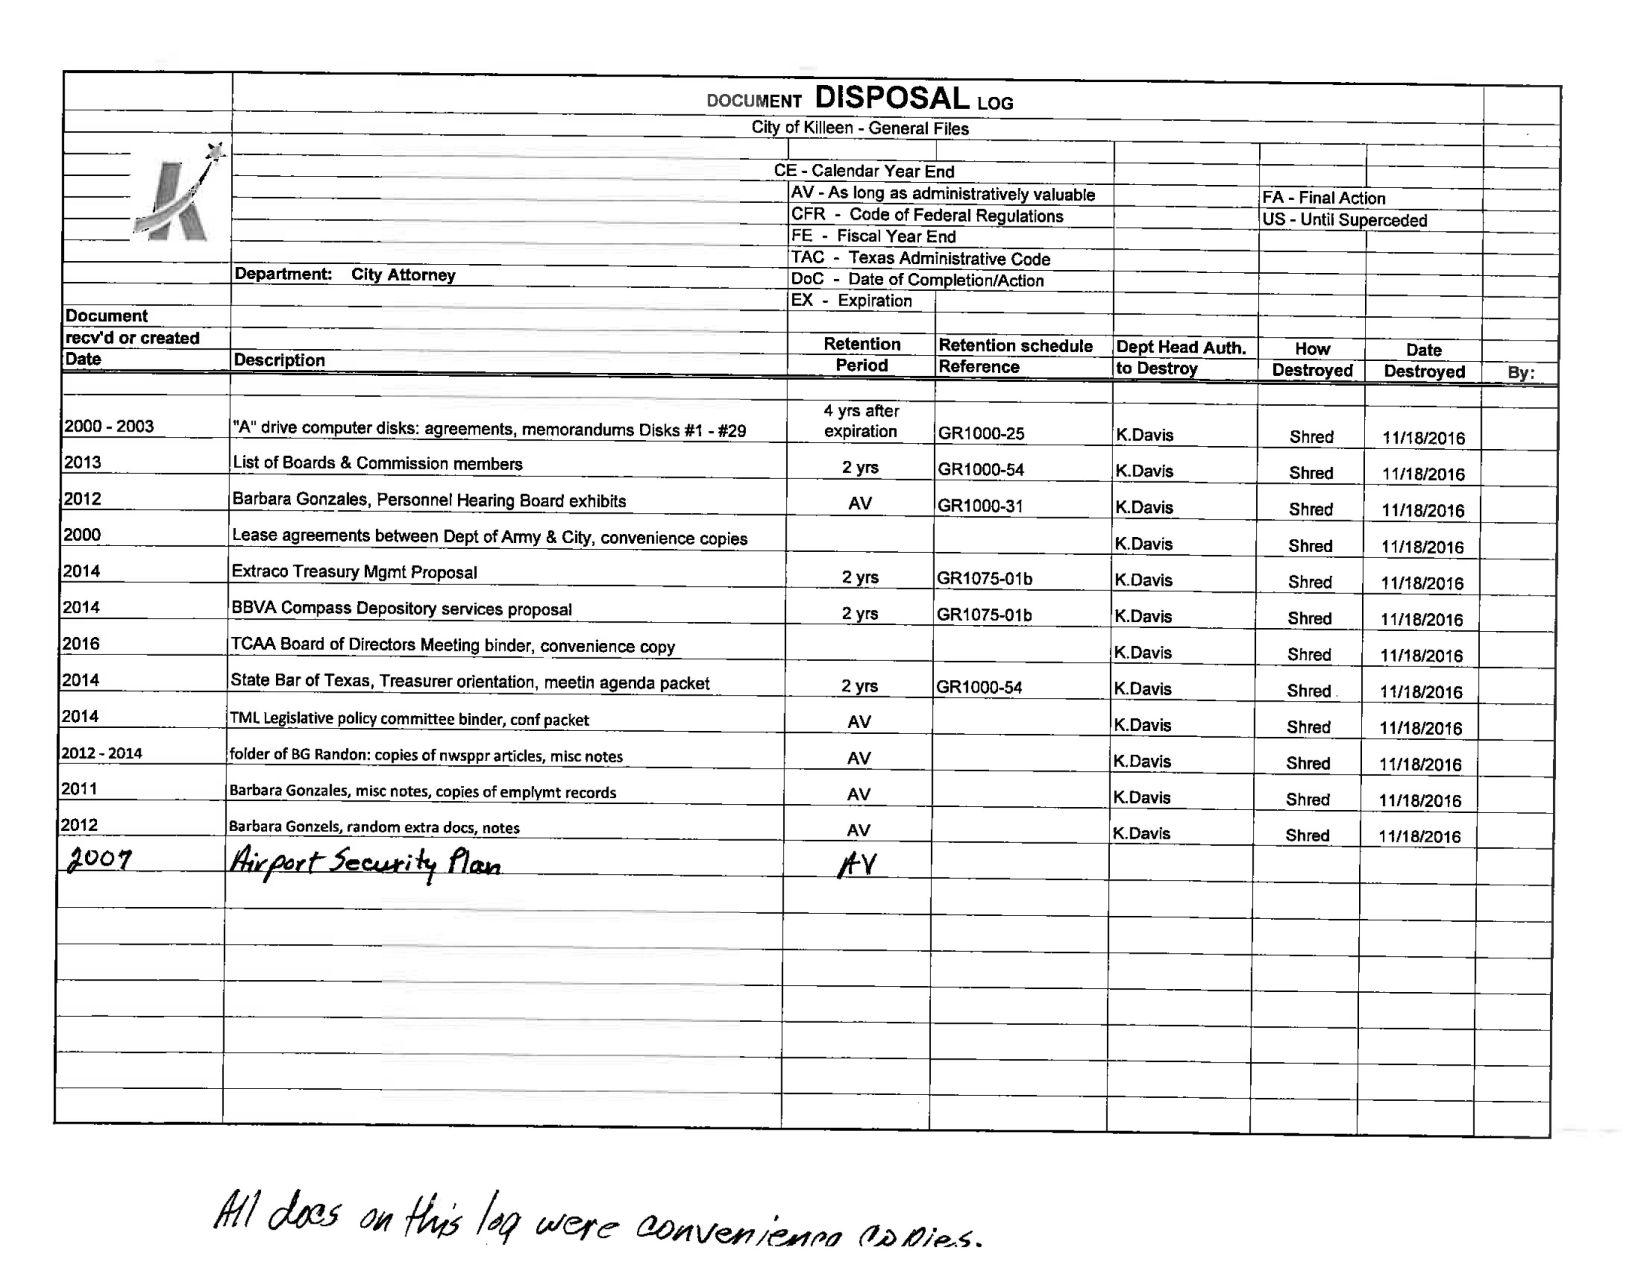 DOCUMENT DISPOSAL LOG
City of Killeen - General Files
CE - Calendar Year End
AV - As long as administratively valuable FA - Final Action
CFR - Code of Federal Regulations US - Until Superceded
FE - Fiscal Year End
TAC - Texas Administrative Code
Department: City Attorney DoC - Date of Completion/Action
EX - Expiration
Document
recv'd or created Retention Retention schedule Dept Head Auth. How Date
Date Description Period Reference to Destroy Destroyed Destroyed By:
4 yrs after
2000 - 2003 "A" drive computer disks: agreements, memorandums Disks #1 - #29 expiration GR1000-25 K.Davis Shred 11/18/2016
2013 List of Boards & Commission members 2 yrs GR1000-54 K.Davis Shred 11/18/2016
2012 Barbara Gonzales, Personnel Hearing Board exhibits AV GR1000-31 K.Davis Shred 11/18/2016
2000 Lease agreements between Dept of Army & City, convenience copies K.Davis Shred 11/18/2016
2014 Extraco Treasury Mgmt Proposal 2 yrs GR1075-01b K.Davis Shred 11/18/2016
2014 BBVA Compass Depository services proposal 2 yrs GR1075-01b K.Davis Shred 11/18/2016
2016 TCAA Board of Directors Meeting binder, convenience copy K.Davis Shred 11/18/2016
2014 State Bar of Texas, Treasurer orientation, meetin agenda packet 2 yrs GR1000-54 K.Davis Shred 11/18/2016
2014 TML Legislative policy committee binder, conf packet AV K.Davis Shred 11/18/2016
2012 - 2014 folder of BG Randon: copies of nwsppr articles, misc notes AV K.Davis Shred 11/18/2016
2011 Barbara Gonzales, misc notes, copies of emplymt records AV K.Davis Shred 11/18/2016
2012 Barbara Gonzels, random extra docs, notes AV K.Davis Shred 11/18/2016
2007 Airport Security Plan AV
All docs on this log were convenience copies.